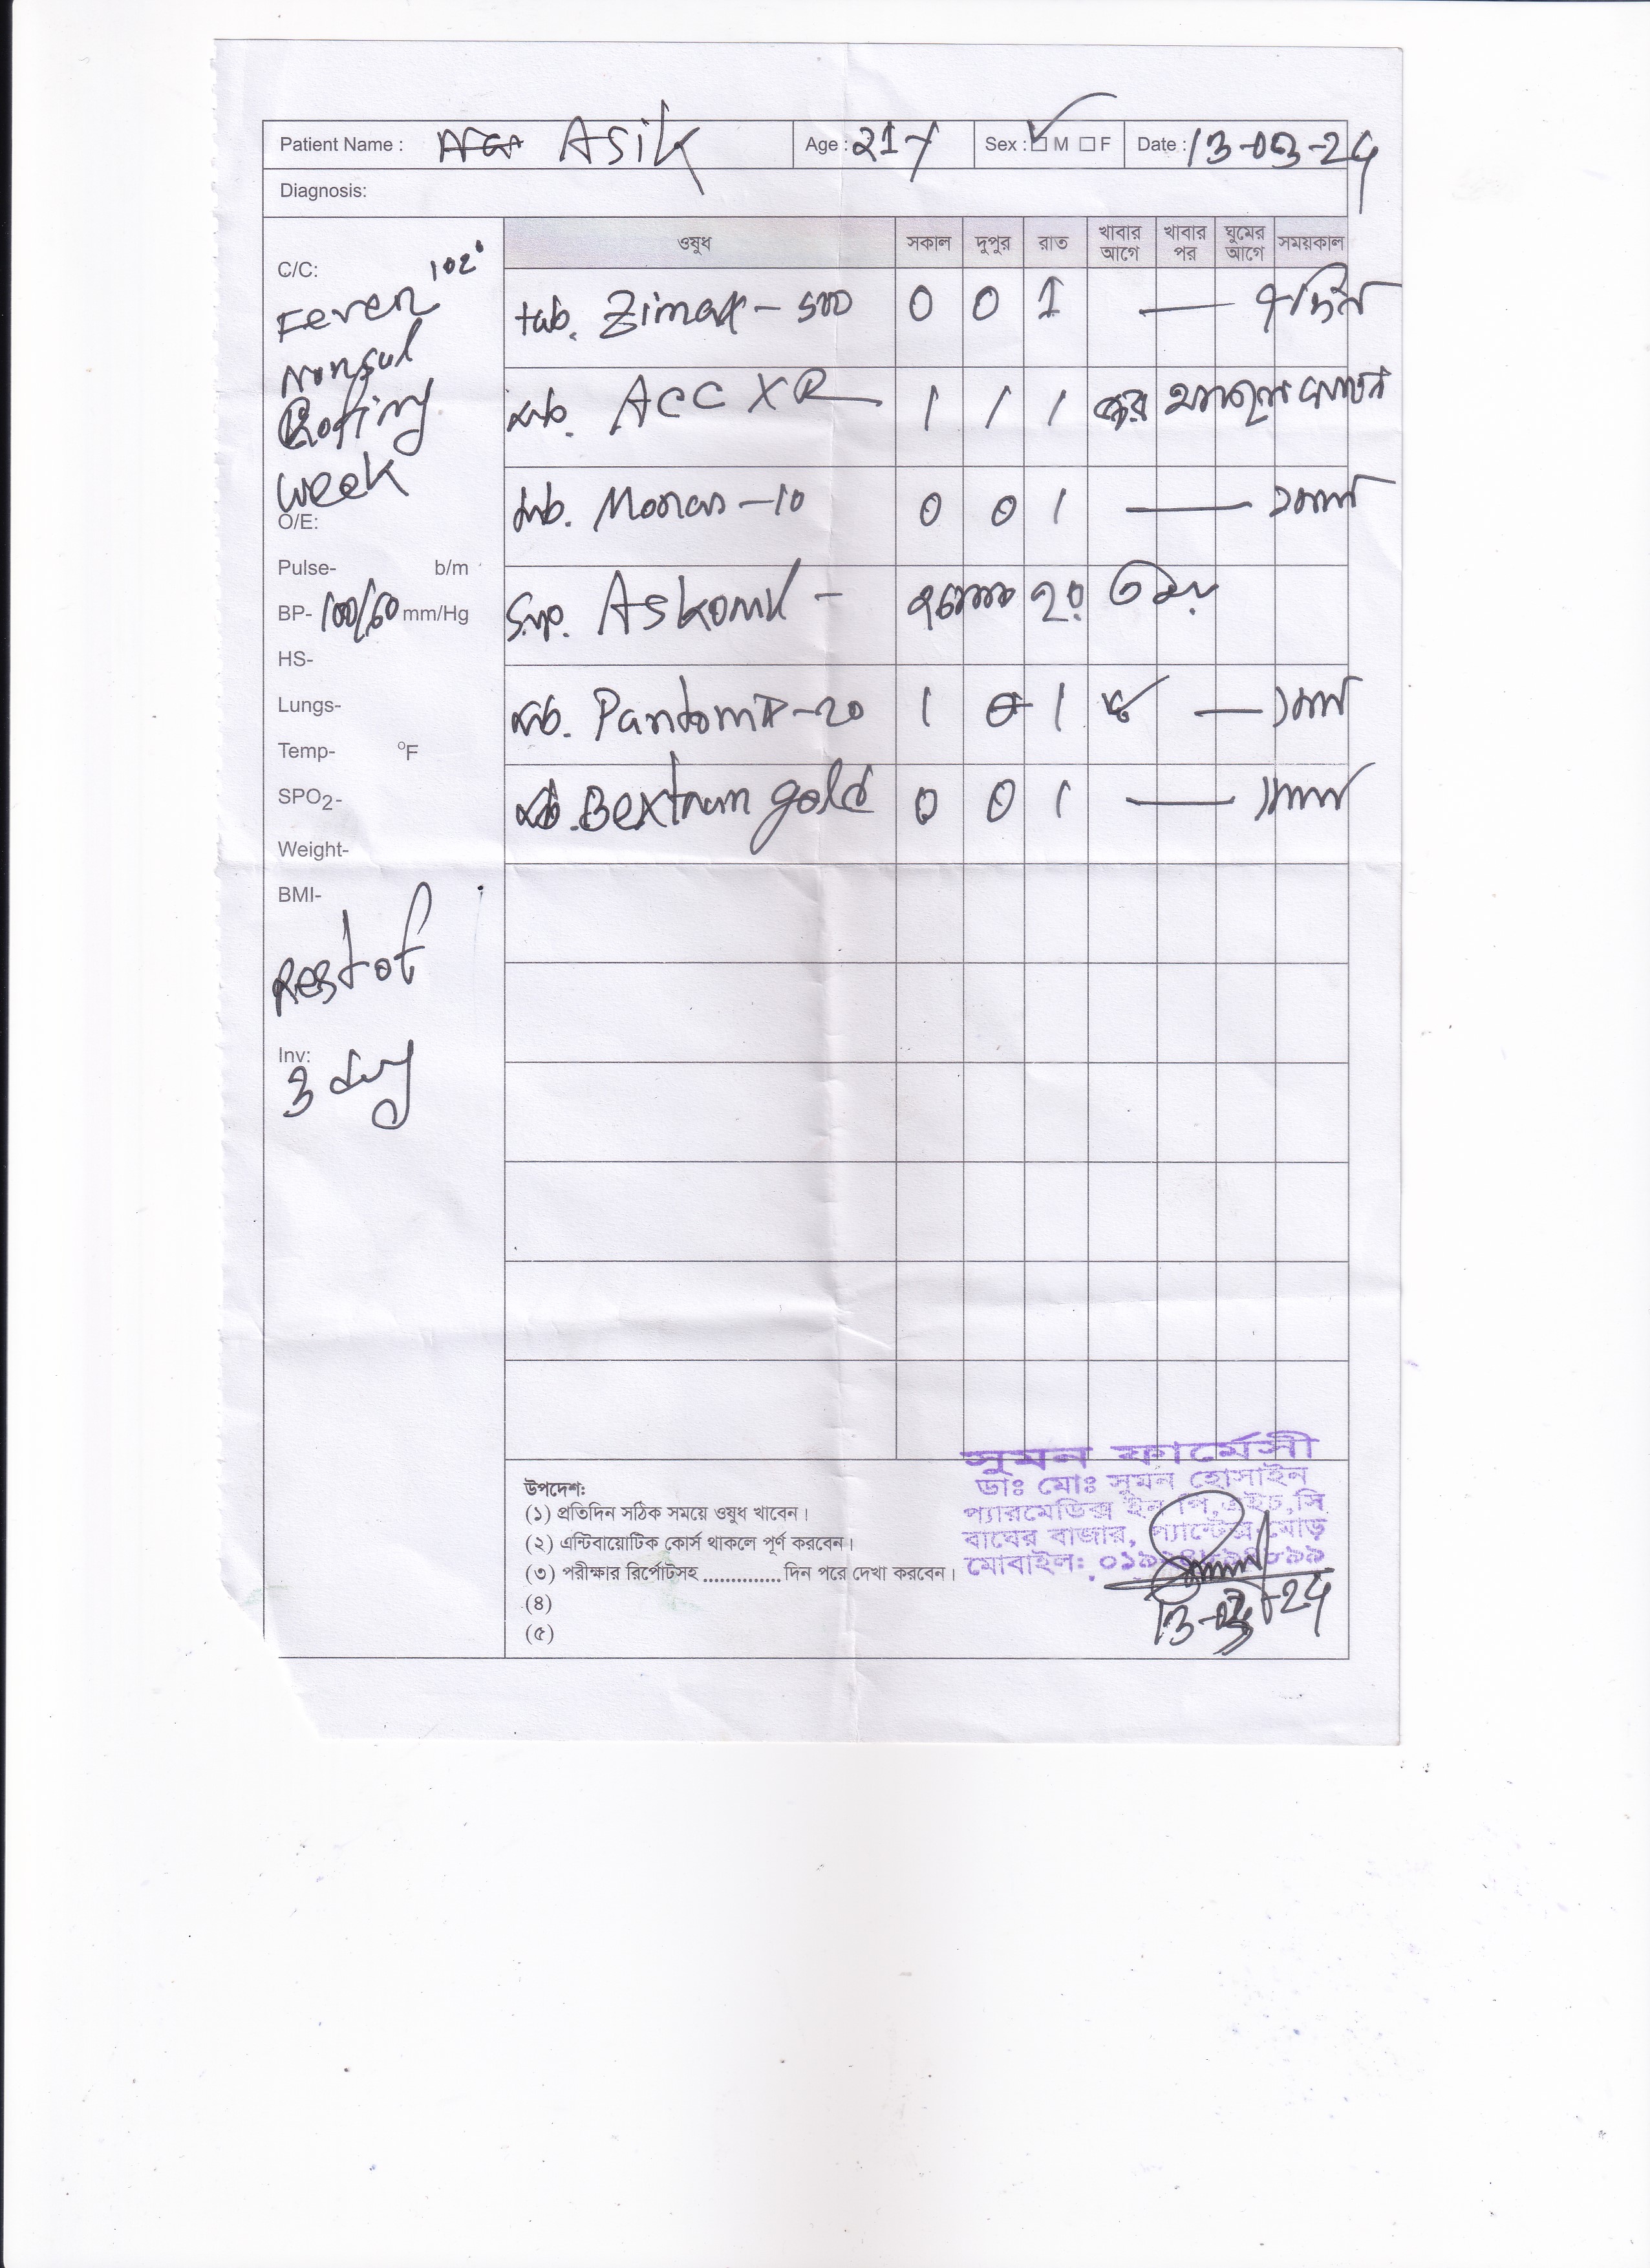 Patient Name : Asik Age : 21y Sex : M F Date : 13-03-24
Diagnosis:
ওষুধ সকাল দুপুর রাত খাবার আগে খাবার পর ঘুমের আগে সময়কাল
C/C: 102°
Fever
week
tab. Zimax - 500 0 0 1 — ৭ দিন
tab. ACE XR 1 1 1 জ্বর থাকলে
tab. Monas - 10 0 0 1 — ১মাস
Syp. - ২চামচ ৩
tab. Pantonix - 20 1 0 1 — ১মাস
tab. Bextram gold 0 0 1 — ১মাস
O/E:
Pulse- b/m
BP- 100/60 mm/Hg
HS-
Lungs-
Temp- °F
SPO2-
Weight-
BMI-
Rest of
Inv:
3 day
উপদেশ:
(১) প্রতিদিন সঠিক সময়ে ওষুধ খাবেন।
(২) এন্টিবায়োটিক কোর্স থাকলে পূর্ণ করবেন।
(৩) পরীক্ষার রির্পোটসহ ............. দিন পরে দেখা করবেন।
(৪)
(৫)
সুমন ফার্মেসী
ডাঃ মোঃ সুমন হোসাইন
প্যারমেডিক্স ইন পি,এইচ,সি
বাঘের বাজার, মোড়
মোবাইল:
13-03-24